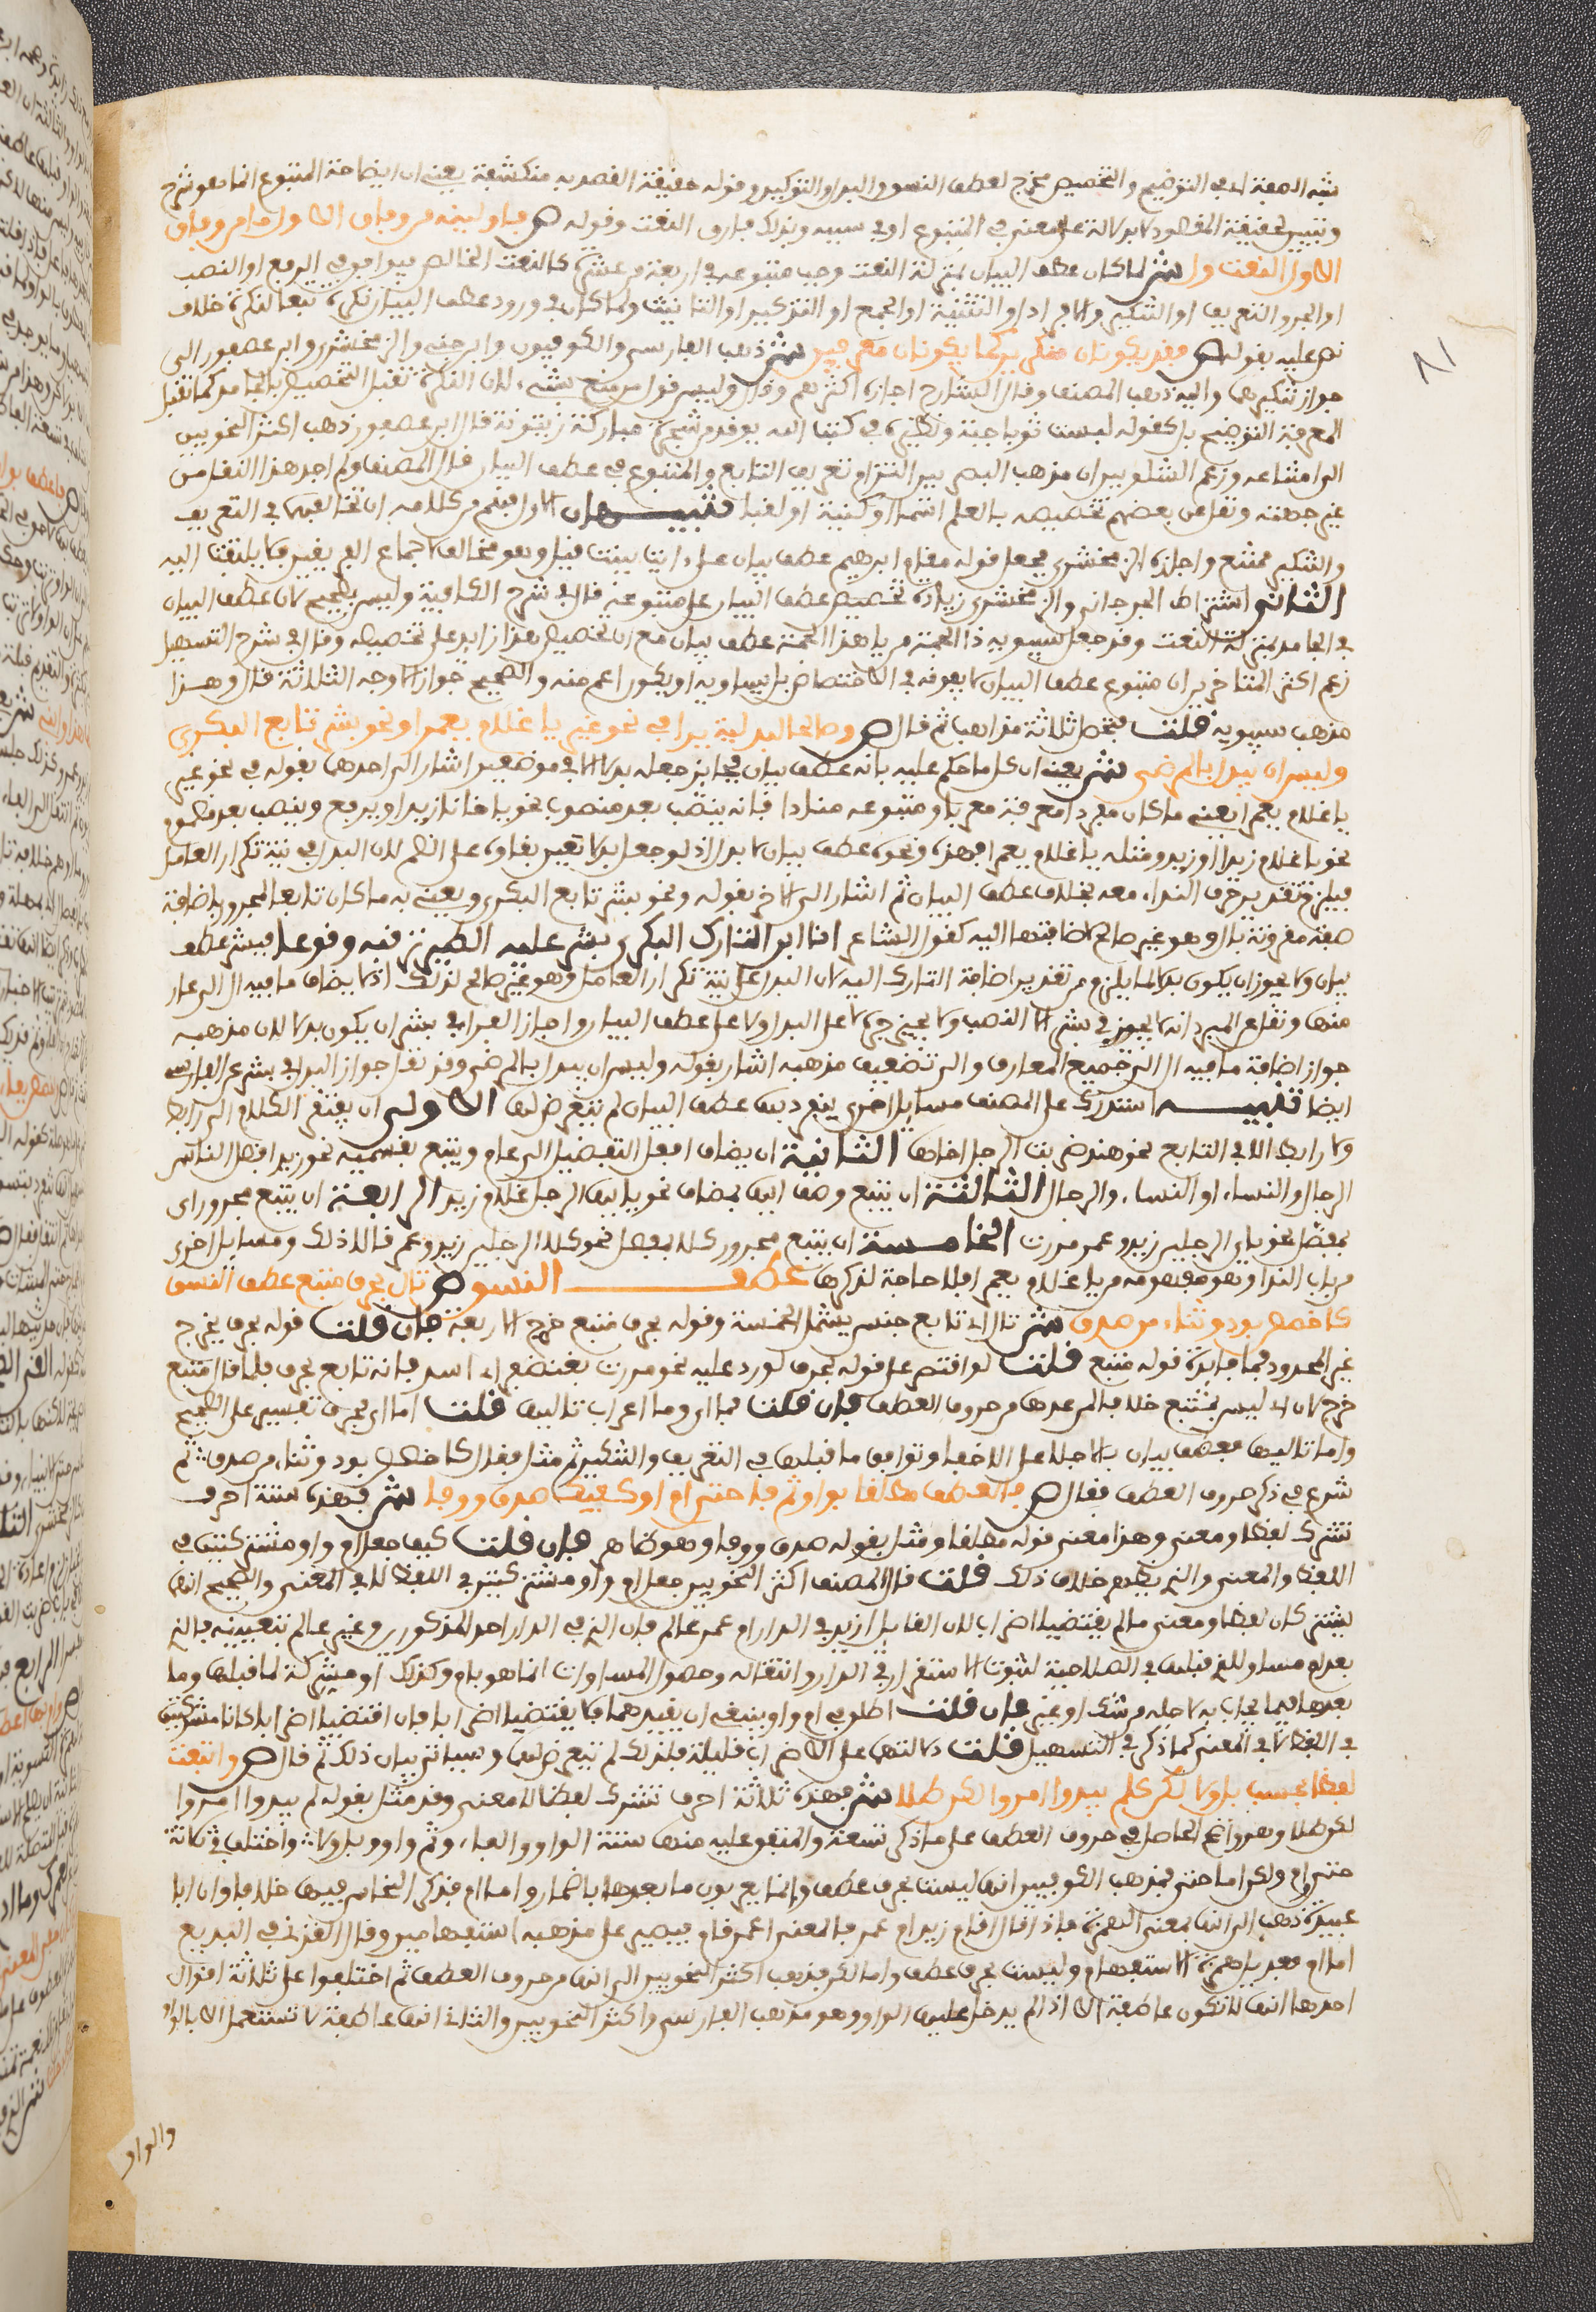 شبه الصفة اي في التوضيح والتخصيص مخرج لعطف النسق والبدل والتوكيد وقوله حقيقة القصد به منكشفة يعني ان ايضاحه المتبوع انما هو بشرح
وتبيين لحقيقة المقصود لا بدلالة على معنى في المتبوع او في سببيه وبذلك فارق النعت وقوله ص فاولينه من وفاق الاول ما من وفاق
الاول النعت ولي ش لما كان عطف البيان بمنزلة النعت وجب متبوعه في اربعة من عشرة كالنعت الخالص فيوافق في الرفع او النصب
او الجر والتعريف او التنكير والافراد او التثنية او الجمع او التذكير او التانيث ولما كان في ورود عطف البيان نكرة تبعا لنكرة خلاف
نص عليه بقوله ص فقد يكونان منكرين كما يكونان معرفين ش ذهب الفارسي والكوفيون وابن جني والزمخشري وابن عصفور الى
جواز تنكيرهما واليه ذهب المصنف وقال الشارح اجازه اكثرهم وقال وليس قول من منع بشيء لان النكرة تقبل التخصيص بالجامد كما تقبل
المعرفة التوضيح به كقوله لبست ثوبا جبة ونظيره في كتاب الله يوقد من شجرة مباركة زيتونة قال ابن عصفور ذهب اكثر النحويين
الى امتناعه وزعم الشلوبين ان مذهب البصريين التزام تعريف التابع والمتبوع في عطف البيان قال المصنف ولم اجد هذا النقل من
غير جهته ونقل عن بعضهم تخصيصه بالعلم اسما او كنية او لقبا تنبيهان الاول فهم من كلامه ان تخالفهما في التعريف
والتنكير ممتنع واجازه الزمخشري فجعل قوله مقام ابرهيم عطف بيان على ايات بينات قيل وهو مخالف لاجماع الفريقين فلا يلتفت اليه
الثاني اشترط الجرجاني والزمخشري زيادة تخصيص عطف البيان على متبوعه قال في شرح الكافية وليس بصحيح لان عطف البيان
في الجامد بمنزلة النعت وقد جعل سيبويه ذا الجمة من يا هذا ذا الجمة عطف بيان مع ان تخصيص هذا زايد على تخصيصه وقال في شرح التسهيل
زعم اكثر المتاخرين ان متبوع عطف البيان لا يفوقه في الاختصاص بل يساويه او يكون اعم منه والصحيح جواز الاوجه الثلاثة قال وهذا
مذهب سيبويه قلت فتحصل ثلاثة مذاهب ثم قال ص وصالحا لبدلية يرى في نحو غير يا غلام يعمرا ونحو بشر تابع البكري
وليس ان يبدل بالمرضي ش يعني ان كل ما حكم عليه بانه عطف بيان فجايز جعله بدلا الا في موضعين اشار الى احدهما بقوله في نحو غير
يا غلام يعمرا يعني ما كان مفردا معرفة معربا ومتبوعه منادا فانه ينصب بعد منصوب نحو يا اخانا زيدا ويرفع وينصب بعد مضموم
نحو يا غلام زيدا وزيد ومثله يا غلام يعمرا فهذه ونحوه عطف بيان لا بدل اذ لو جعل بدلا تعين بناوه على الضم لان البدل في نية تكرار العامل
فيلزم تقدير حرف النداء معه بخلاف عطف البيان ثم اشار الى الاخر بقوله ونحو بشر تابع البكري ويعني به ما كان تابعا لمجرور باضافة
صفة مقرونة بال وهو غير صالح لاضافتها اليه كقول الشاعر انا ابن التارك البكري بشر عليه الطير ترقبه وقوعا فبشر عطف
بيان ولا يجوز ان يكون بدلا لما يلزم من تقدير اضافة التارك اليه لان البدل على نية تكرار العامل وهو غير صالح لذلك اذ لا يضاف ما فيه ال الى عار
منها ونقل عن المبرد انه لا يجوز في بشر الا النصب ولا يجيز جره لا على البدل ولا على عطف البيان واجاز الفراء في بشر ان يكون بدلا لان مذهبه
جواز اضافة ما فيه ال الى جميع المعارف والى تضعيف مذهبه اشار بقوله وليس ان يبدل بالمرضي وقد نقل جواز البدل في بشر عن الفارسي
ايضا تنبيه استدرك على المصنف مسايل اخرى ينفرد بها عطف البيان لم يتعرض لها الاولى ان يفتقر الكلام الى رابط
ولا رابط الا في التابع نحو هند ضربت الرجل اخاها الثانية ان يضاف افعل التفضيل الى عام ويتبع بقسميه نحو زيد افضل الناس
الرجال والنساء او النساء والرجال الثالثة ان يتبع وصف اي بمضاف نحو يا ايها الرجل غلام زيد الرابعة ان يتبع مجرور اي
بمفصل نحو باي الرجلين زيد وعمر مررت الخامسة ان يتبع مجرور كلا بمفصل نحو كلا الرجلين زيد وعمر قالا ذلك ومسايل اخرى
من باب النداء وهو مفهومه من يا غلام يعمرا فلا حاجة لذكرها عطف النسق ص تال بحرف متبع عطف النسق
كاخصص بود وثناء من صدق ش تال اي تابع جنس يشمل الخمسة وقوله بحرف متبع خرج الاربعة فان قلت قوله بحرف يخرج
غير المحدود فما فايدة قوله متبع قلت لو اقتصر على قوله بحرف لورد عليه نحو مررت بغضنفر اي اسد فانه تابع بحرف فلما قال متبع
خرج لان اي ليس بمتبع خلافا لمن عدها من حروف العطف فان قلت فما اي وما اعراب تاليها قلت اما اي فحرف تفسير على الصحيح
واما تاليها فعطف بيان بالاجلى على الاخفى وتوافق ما قبلها في التعريف والتنكير ثم مثل فقال كاخصص بود وثناء من صدق ثم
شرع في ذكر حروف العطف فقال ص فالعطف مطلقا بواو ثم فا حتى ام او كفيك صدق ووفا ش فهذه ستة احرف
تشرك لفظا ومعنى وهذا معنى قوله مطلقا ومثل بقوله صدق ووفا وهو ظاهر فان قلت كيف جعل ام واو مشتركتين في
اللفظ والمعنى والنحويين على خلاف ذلك قلت قال المصنف اكثر النحويين جعل ام واو مشتركتين في اللفظ لا في المعنى والصحيح انها
يشتركان لفظا ومعنى ما لم يقتضيا اضرابا لان القايل ازيد في الدار ام عمر عالم بان الذي في الدار احد المذكورين وغير عالم بتعيينه فالذي
بعد ام مساو للذي قبلها في الصلاحية لثبوت الاستقرار في الدار وانتفائه وحصول المساوات انما هو بام وكذلك او مشركة لما قبلها وما
بعدها فيما يجاء به لاجله من شك او غيره فان قلت اطلق في ام واو وينبغي ان يقيدهما فلا يقتضيا اضرابا فان اقتضيا اضرابا كانا مشركتين
في اللفظ لا في المعنى كما ذكر في التسهيل قلت دلالتهما على الاضراب قليلة فلذلك لم يتعرض لها وسياتي بيان ذلك ثم قال ص واتبعت
لفظا فحسب بل ولا لكن كلم يبدوا امروا لكن طلا ش فهذه ثلاثة احرف تشرك لفظا لا معنى وقد مثل بقوله لم يبدوا امروا
لكن طلا وهو واضح الحاصل في حروف العطف على ما ذكر تسعة والمتفق عليه منها ستة الواو والفاء وثم واو وبل ولا واختلف في ثلاثة
حتى وام ولكن اما حتى فمذهب الكوفيين انها ليست بحرف عطف وانما يعربون ما بعدها باضمار واما ام فذكر النحاس فيها خلافا وان ابا
عبيدة ذهب الى انها بمعنى الهمزة فاذا قال اقام زيد ام عمر فالمعنى اعمر قام فيصير على مذهبه استفهامين وقال الغزني في البديع
اما ام فعديل همزة الاستفهام وليست بحرف عطف واما لكن فذهب اكثر النحويين الى انها من حروف العطف ثم اختلفوا على ثلاثة اقوال
احدها انها لا تكون عاطفة الا اذا لم يدخل عليها الواو وهو مذهب الفارسي واكثر النحويين والثاني انها عاطفة لا تستعمل الا بالواو
والواو